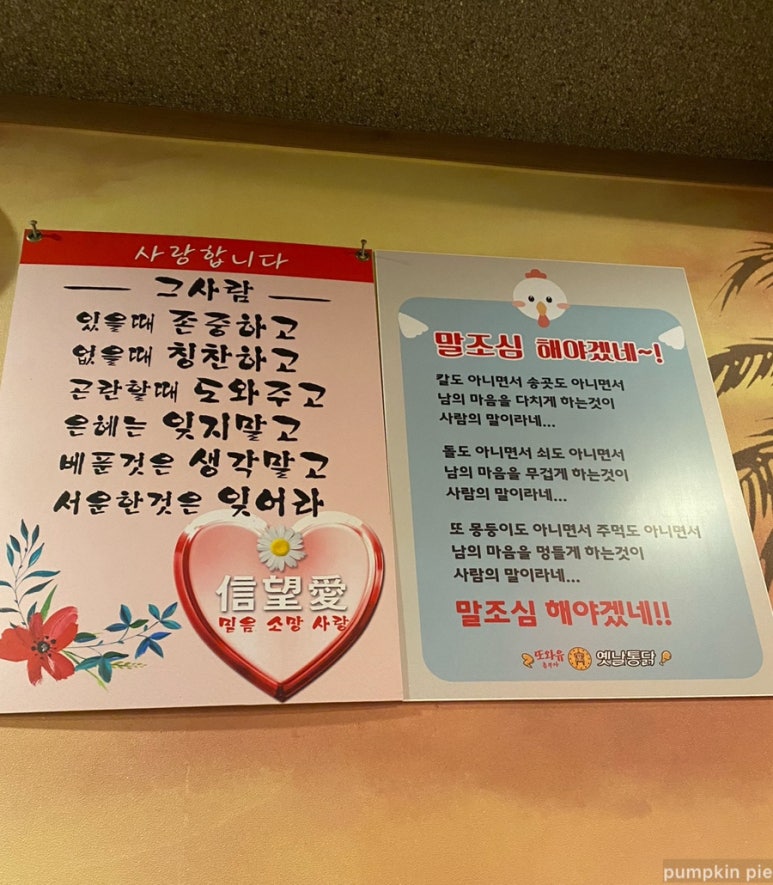 사랑합니다
그사람
있을때 존중하고
없을때 칭찬하고
곤란할때 도와주고
은혜는 잊지말고
베푼것은 생각말고
서운한것은 잊어라
信望愛
믿음 소망 사랑
말조심 해야겠네~!
칼도 아니면서 송곳도 아니면서
남의 마음을 다치게 하는것이
사람의 말이라네...
돌도 아니면서 쇠도 아니면서
남의 마음을 무겁게 하는것이
사람의 말이라네...
또 몽둥이도 아니면서 주먹도 아니면서
남의 마음을 멍들게 하는것이
사람의 말이라네...
말조심 해야겠네!!
또와유 옛날통닭
pumpkin pie